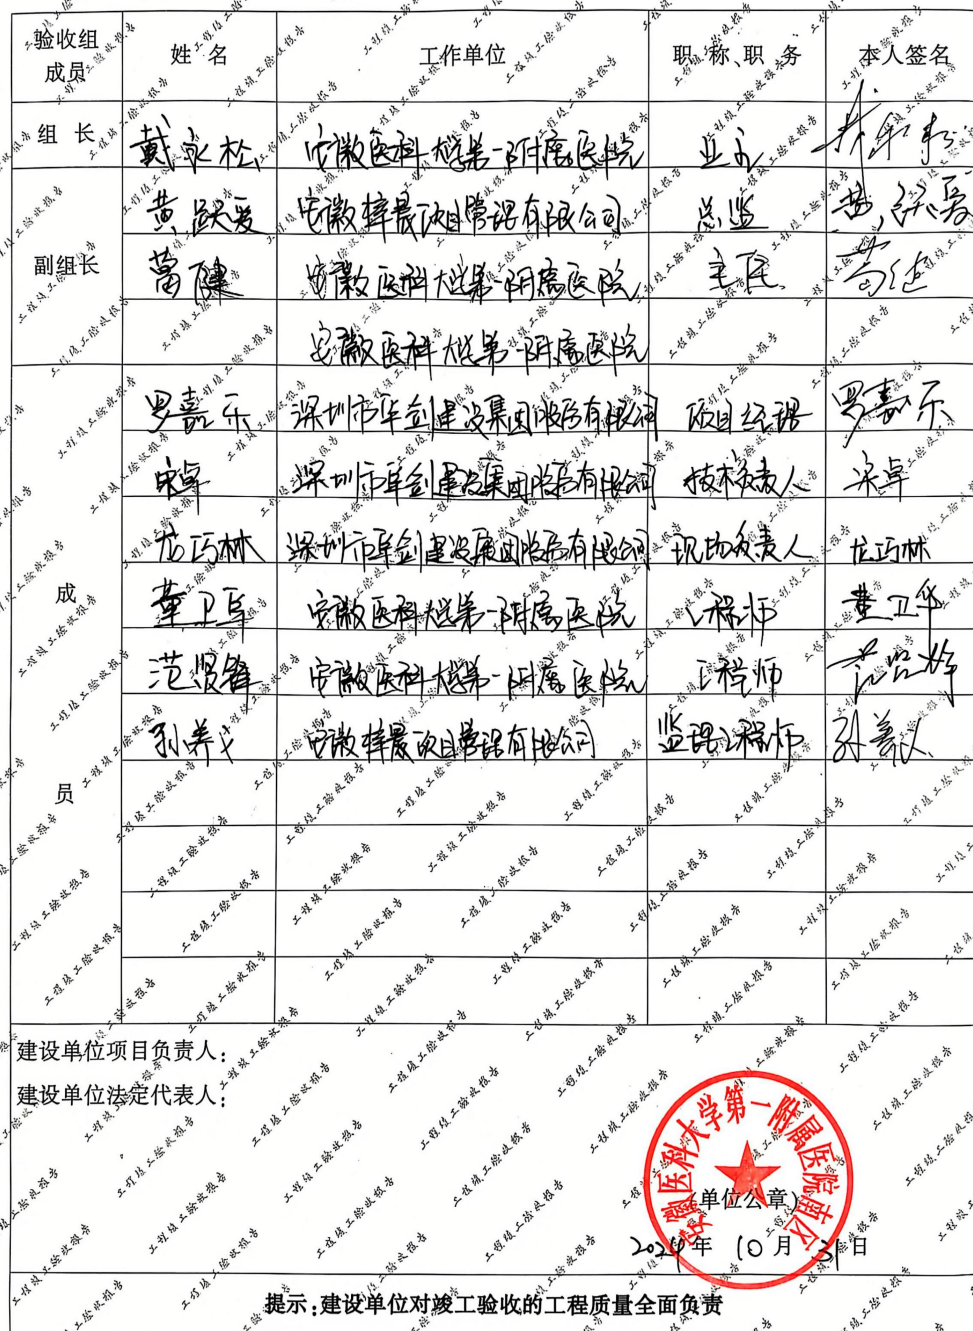 验收组成员 姓 名 工作单位 职 称、职 务 本人签名
组 长 戴永松 安徽医科大学第一附属医院 业主
黄跃爱 安徽梓晟项目管理有限公司 总监 黄跃爱
副组长 葛健 安徽医科大学第一附属医院 葛健
安徽医科大学第一附属医院
罗嘉乐 深圳市华剑建设集团股份有限公司 项目经理 罗嘉乐
宋卓 深圳市华剑建设集团股份有限公司 技术负责人 宋卓
龙巧林 深圳市华剑建设集团股份有限公司 现场负责人 龙巧林
董卫华 安徽医科大学第一附属医院 工程师 董卫华
范贤锋 安徽医科大学第一附属医院 工程师
孙养义 安徽梓晟项目管理有限公司 监理工程师 孙养义
成
员
建设单位项目负责人：
建设单位法定代表人：
安徽医科大学第一附属医院南区
（单位公章）
2024年 10月 31日
提示：建设单位对竣工验收的工程质量全面负责
工程竣工验收报告